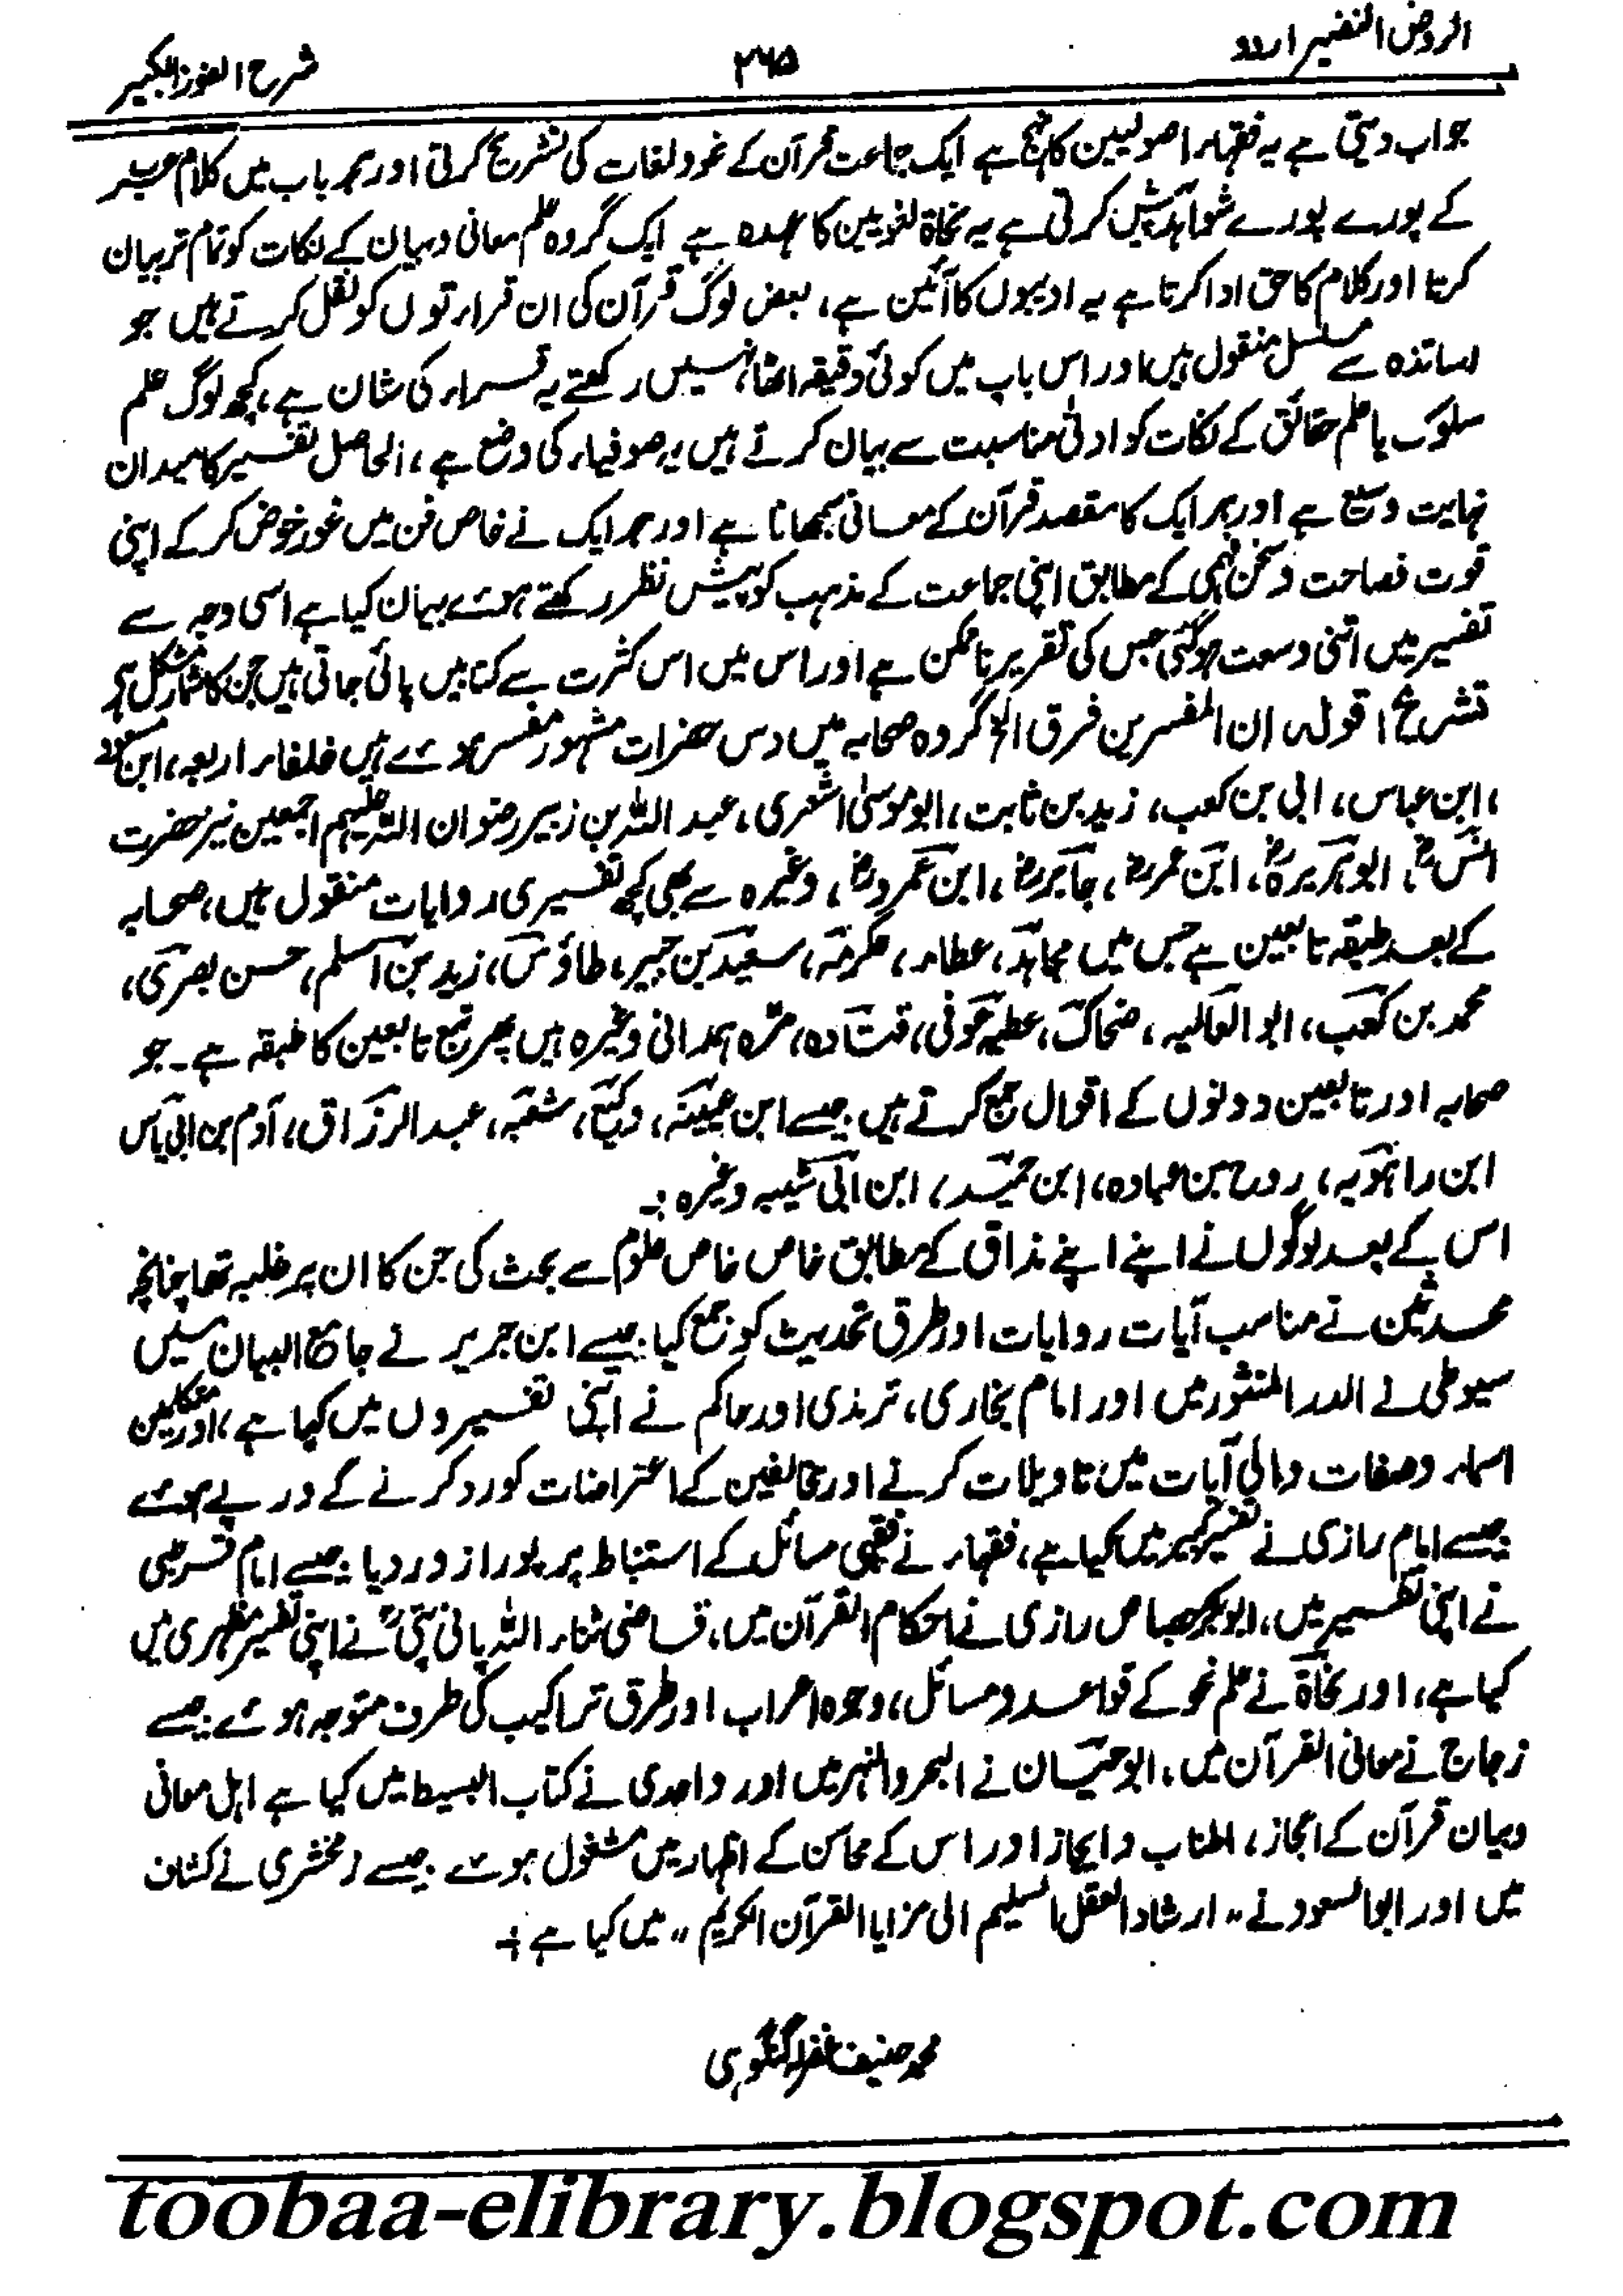 الروض النضیر اردو
۲۶۵
شرح الفوز الکبیر
جواب دیتی ہے یہ فقہاء اصولیین کا نہج ہے ایک جماعت قرآن کے نحو ولغات کی تشریح کرتی اور ہر باب میں کلام عرب
کے پورے پورے شواہد پیش کرتی ہے یہ نحاۃ لغویین کا عہدہ ہے ایک گروہ علم معانی وبیان کے نکات کو تمام تر بیان
کرتا اور کلام کا حق ادا کرتا ہے یہ ادیبوں کا آئین ہے، بعض لوگ قرآن کی ان قراءتوں کو نقل کرتے ہیں جو
اساتذہ سے مسلسل منقول ہیں اور اس باپ میں کوئی دقیقہ اٹھا نہیں رکھتے یہ قراء کی شان ہے، کچھ لوگ علم
سلوک یا علم حقائق کے نکات کو ادنیٰ مناسبت سے بیان کرتے ہیں یہ صوفیاء کی وضع ہے، الحاصل تفسیر کا میدان
نہایت وسیع ہے اور ہر ایک کا مقصد قرآن کے معانی سمجھانا ہے اور ہر ایک نے خاص فن میں غور خوض کر کے اپنی
قوت فصاحت وسخن فہمی کے مطابق اپنی جماعت کے مذہب کو پیش نظر رکھتے ہوئے بیان کیا ہے اسی وجہ سے
تفسیر میں اتنی وسعت ہوگئی جس کی تقریر ناممکن ہے اور اس میں اس کثرت سے کتابیں پائی جاتی ہیں جن کا شمار مشکل ہے
تشریح؛ قولہ ان المفسرین فرق الخ گروہ صحابہ میں دس حضرات مشہور مفسر ہوئے ہیں خلفاء اربعہ، ابن مسعود
، ابن عباس، ابی بن کعب، زید بن ثابت، ابو موسیٰ اشعری، عبد اللہ بن زبیر رضوان اللہ علیہم اجمعین نیز حضرت
انسؓ، ابو ہریرہؓ، ابن عمرؓ، جابرؓ، ابن عمروؓ، وغیرہ سے بھی کچھ تفسیری روایات منقول ہیں، صحابہ
کے بعد طبقہ تابعین ہے جس میں مجاہد، عطاء، عکرمہ، سعید بن جبیر، طاؤس، زید بن اسلم، حسن بصری،
محمد بن کعب، ابو العالیہ، ضحاک، عطیہ عوفی، قتادہ، مرہ ہمدانی وغیرہ ہیں پھر تبع تابعین کا طبقہ ہے۔ جو
صحابہ اور تابعین دونوں کے اقوال جمع کرتے ہیں جیسے ابن عیینہ، وکیع، شعبہ، عبد الرزاق، آدم بن ابی یاس
ابن راہویہ، روح بن عبادہ، ابن حمید، ابن ابی شیبہ وغیرہ :۔
اس کے بعد لوگوں نے اپنے اپنے مذاق کے مطابق خاص خاص علوم سے بحث کی جن کا ان پر غلبہ تھا چنانچہ
محدثین نے مناسب آیات روایات اور طرق تحدیث کو جمع کیا جیسے ابن جریر نے جامع البیان میں
سیوطی نے الدر المنثور میں اور امام بخاری، ترمذی اور حاکم نے اپنی تفسیروں میں کیا ہے، اور متکلمین
اسماء وصفات والی آیات میں تاویلات کرنے اور مخالفین کے اعتراضات کو رد کرنے کے در پے ہوئے
جیسے امام رازی نے تفسیر کبیر میں کیا ہے، فقہاء نے فقہی مسائل کے استنباط پر پورا زور دیا جیسے امام قرطبی
نے اپنی تفسیر میں، ابوبکر جصاص رازی نے احکام القرآن میں، قاضی ثناء اللہ پانی پتیؒ نے اپنی تفسیر مظہری میں
کیا ہے، اور نحاۃ نے علم نحو کے قواعد ومسائل، وجوہ اعراب اور طرق تراکیب کی طرف متوجہ ہوئے جیسے
زجاج نے معانی القرآن میں، ابو حیان نے البحر والنہر میں اور واحدی نے کتاب البسیط میں کیا ہے اہل معانی
وبیان قرآن کے اعجاز، اطناب وایجاز اور اس کے محاسن کے اظہار میں مشغول ہوئے جیسے زمخشری نے کشاف
میں اور ابو السعود نے ،، ارشاد العقل السلیم الی مزایا القرآن الکریم ،، میں کیا ہے :۔
محمد حنیف غفرلہ گنگوہی
toobaa-elibrary.blogspot.com